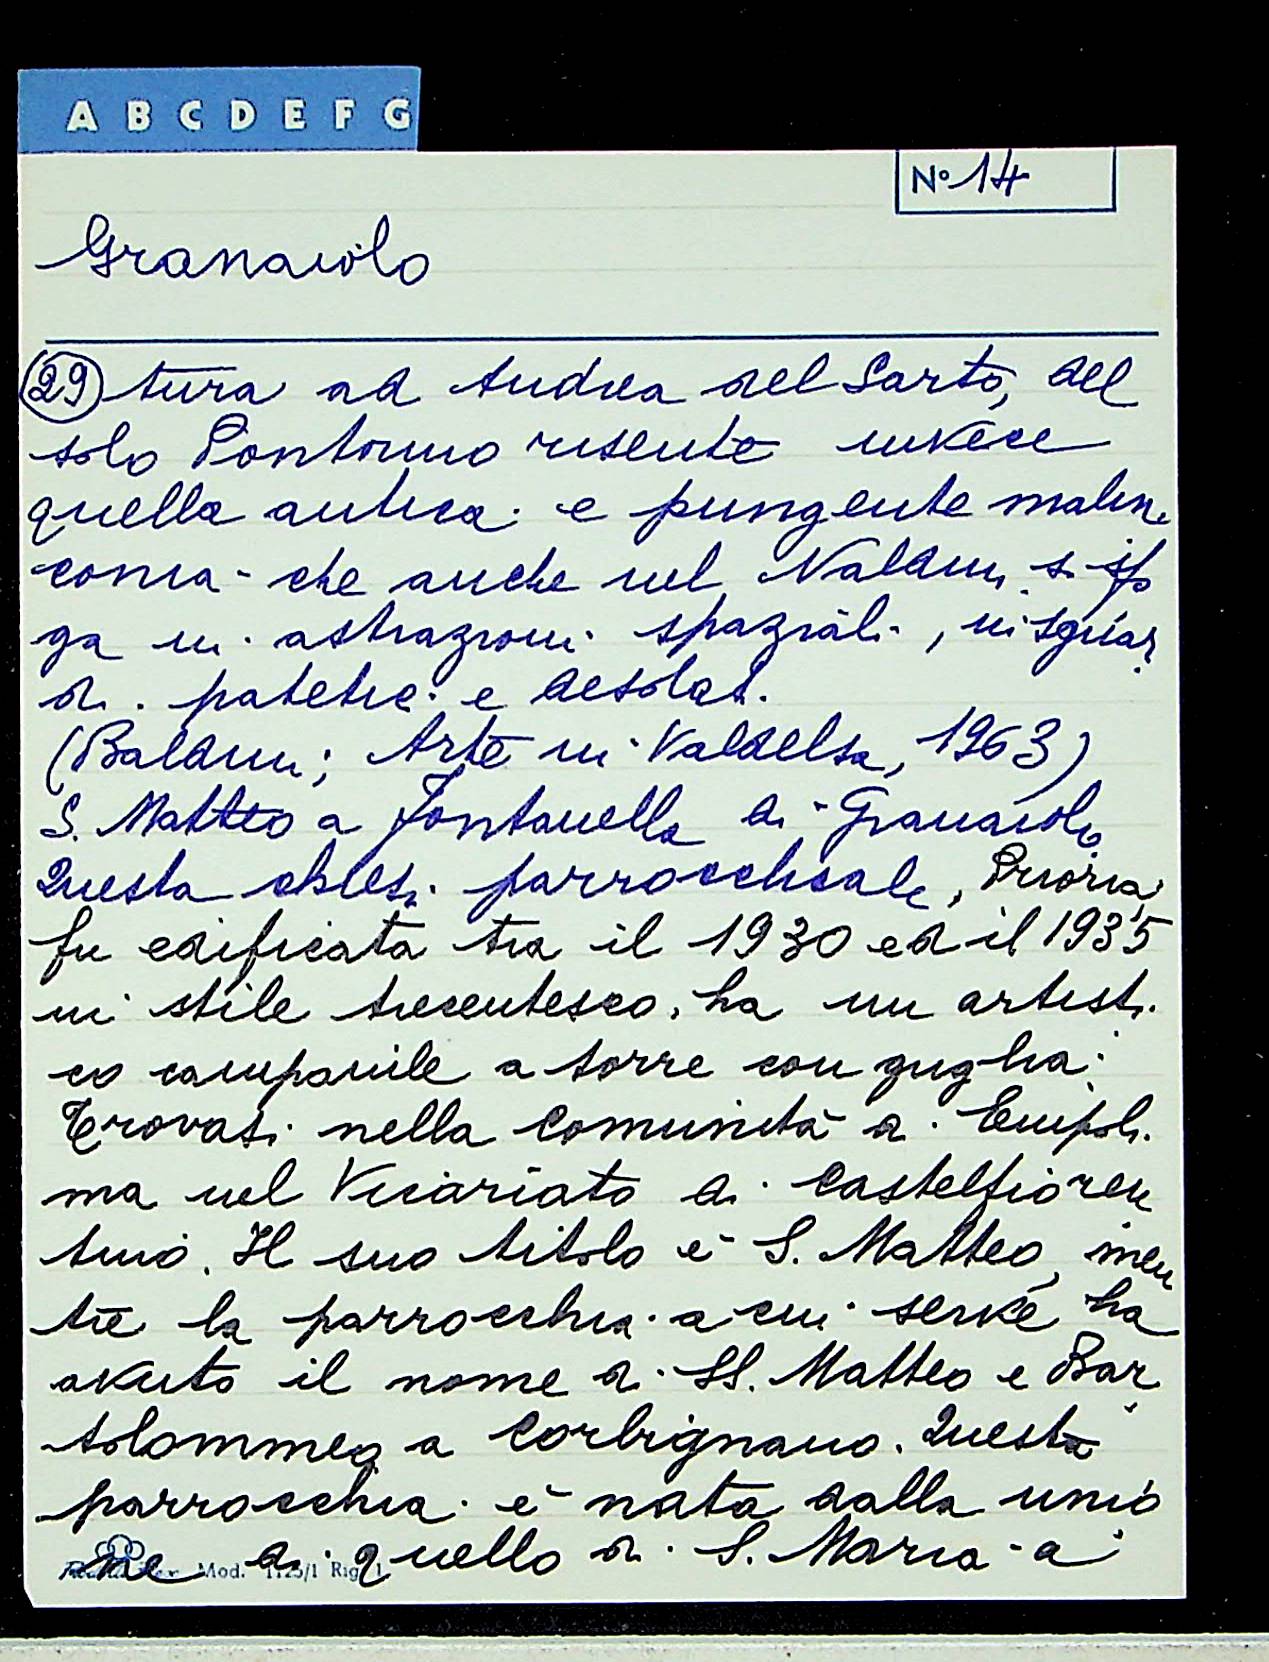 A B C D E F G
N° 14
Granaiolo
29 tura ad Andrea del Sarto, del
solo Pontormo risente invece
quella antica e pungente malin
conia che anche nel Naldini si sfo
ga in astrazioni spaziali, in sguar
di patetici e desolati.
(Baldini; Arte in Valdelsa, 1963)
S. Matteo a Fontanella di Granaiolo
Questa chiesa parrocchiale, Prioria,
fu edificata tra il 1930 ed il 1935
in stile trecentesco, ha un artisti
co campanile a torre con guglia.
Trovasi nella Comunità di Empoli
ma nel Vicariato di Castelfioren
tino. Il suo titolo è S. Matteo, men
tre la parrocchia a cui serve ha
avuto il nome di SS. Matteo e Bar
tolommeo a Corbignano. Questa
parrocchia è nata dalla unio
ne di quello di S. Maria a
Mod. 1125/1 Rig.